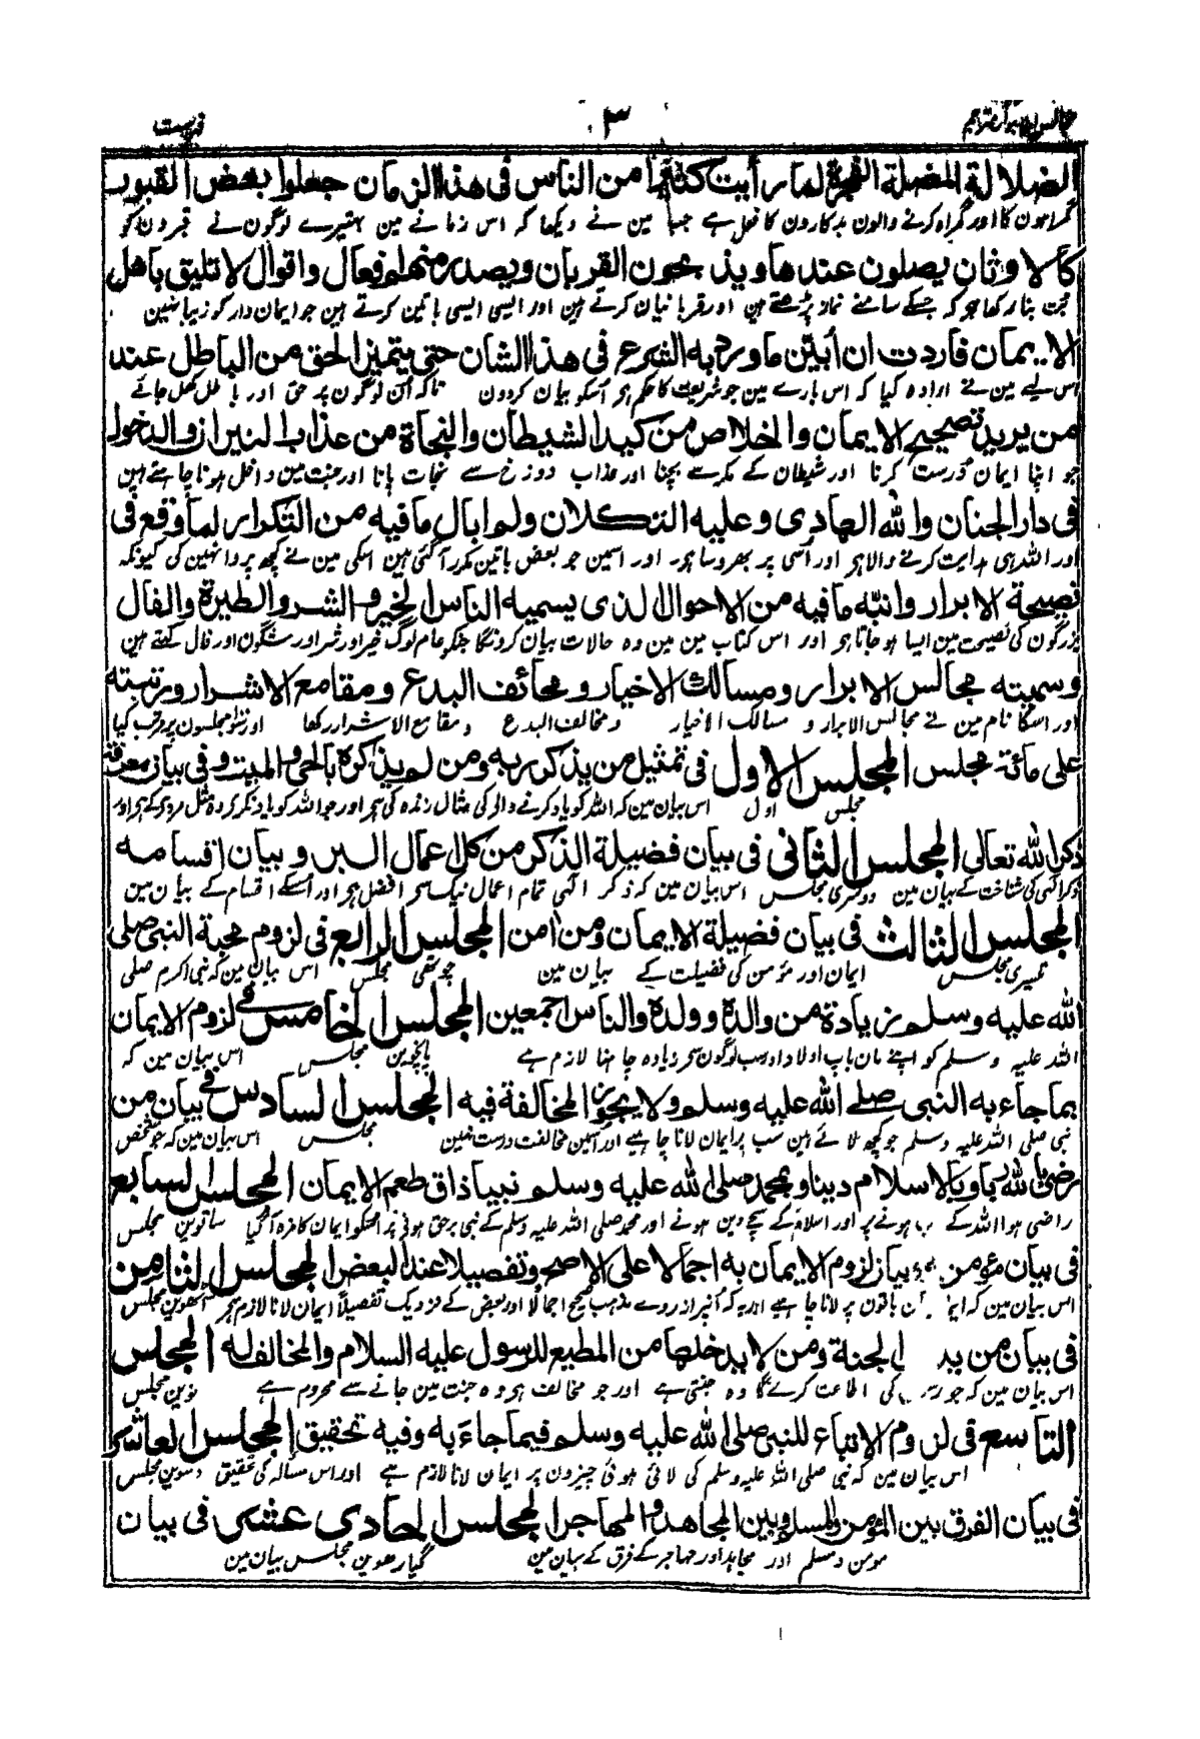 فہرست ٣ مجالس الابرار مترجم
الضلالة المضلة الفجرة لما رأيت كثيرا من الناس فى هذا الزمان جعلوا بعض القبور
گمراہون کا اور گمراہ کرنے والون بدکارون کا فعل ہے جبا مین نے دیکھا کہ اس زمانے مین بہتیرے لوگون نے قبرون کو
كالاوثان يصلون عندها ويذبحون القربان ويصدر منهم افعال واقوال لا تليق باهل
بت بنا رکھا ہو کہ جسکے سامنے نماز پڑھتے ہین اور قربانیان کرتے ہین اور ایسی ایسی باتین کرتے ہین جو ایمان دار کو زیبا نہین
الايمان فاردت ان أبين ما ورد به الشرع فى هذا الشان حتى يتميز الحق من الباطل عند
اس لیے مین نے ارادہ کیا کہ اس بارے مین جو شریعت کا حکم ہو اسکو بیان کردون تاکہ ان لوگون پر حق اور باطل کھل جائے
من يريد تصحيح الايمان والخلاص من كيد الشيطان والنجاة من عذاب النيران والدخول
جو اپنا ایمان درست کرنا اور شیطان کے مکر سے بچنا اور عذاب دوزخ سے نجات پانا اور جنت مین داخل ہونا چاہتے ہین
فى دار الجنان والله الهادى وعليه التكلان ولم ابال ما فيه من التكرار لما وقع فى
اور اللہ ہی ہدایت کرنے والا ہو اور اسی پر بھروسا ہو اور اسمین جو بعض باتین مکرر آگئی ہین اسکی مین نے کچھ پروا نہین کی کیونکہ
نصيحة الابرار وانبه ما فيه من الاحوال الذى يسميه الناس الخير والشر والطيرة والفال
بزرگون کی نصیحت مین ایسا ہو جاتا ہو اور اس کتاب مین مین وہ حالات بیان کرونگا جنکو عام لوگ خیر اور شر اور شگون اور فال کہتے ہین
وسميته مجالس الابرار ومسالك الاخيار ومحائف البدع ومقامع الاشرار ورتبته
اور اسکا نام مین نے مجالس الابرار و مسالک الاخیار و مخالف البدع و مقامع الاشرار رکھا اور سو مجلسون پر مرتب کیا
على مائة مجلس المجلس الاول فى تمثيل من يذكر ربه ومن لم يذكره بالحى والميت وفى بيان معرفة
مجلس اول اس بیان مین کہ اللہ کو یاد کرنے والے کی مثال زندہ کی ہو اور جو اللہ کو یاد نکرے وہ مثل مردے کے ہو اور
ذكر الله تعالى المجلس الثانى فى بيان فضيلة الذكر من كل اعمال البر وبيان اقسامه
ذکر الہی کی شناخت کے بیان مین دوسری مجلس اس بیان مین کہ ذکر الہی تمام اعمال نیک سے افضل ہو اور اسکے اقسام کے بیان مین
المجلس الثالث فى بيان فضيلة الايمان ومن امن المجلس الرابع فى لزوم محبة النبى صلى
تیسری مجلس ایمان اور مؤمن کی فضیلت کے بیان مین چوتھی مجلس اس بیان مین کہ نبی اکرم صلی
الله عليه وسلم زيادة من والدة وولدة والناس اجمعين المجلس الخامس فى لزوم الايمان
اللہ علیہ وسلم کو اپنے مان باپ اولاد اور سب لوگون سے زیادہ چاہنا لازم ہے پانچوین مجلس اس بیان مین کہ
بما جاء به النبى صلى الله عليه وسلم ولا يجوز المخالفة فيه المجلس السادس فى بيان من
نبی صلی اللہ علیہ وسلم جو کچھ لائے ہین سب پر ایمان لانا چاہیے اور اسمین مخالفت درست نہین مجلس اس بیان مین کہ جو شخص
رضى بالله ربا وبالاسلام دينا وبمحمد صلى الله عليه وسلم نبيا ذاق طعم الايمان المجلس السابع
راضی ہوا اللہ کے رب ہونے پر اور اسلام کے سچے دین ہونے اور محمد صلی اللہ علیہ وسلم کے نبی برحق ہونے پر اسکو ایمان کا مزہ آگیا ساتوین مجلس
فى بيان مؤمن به وبيان لزوم الايمان به اجمالا على الاصح وتفصيلا عند البعض المجلس الثامن
اس بیان مین کہ ان باتون پر لانا چاہیے اور یہ کہ انپر از روے مذہب صحیح اجمالا اور بعض کے نزدیک تفصیلاً ایمان لانا لازم ہو آٹھوین مجلس
فى بيان من يد الجنة ومن لا يدخلها من المطيع للرسول عليه السلام والمخالف له المجلس
اس بیان مین کہ جو کی اطاعت کرے گا وہ جنتی ہے اور جو مخالف ہو وہ جنت مین جانے سے محروم ہے نوین مجلس
التاسع فى لزوم الاتباع للنبى صلى الله عليه وسلم فيما جاء به وفيه تحقيق المجلس العاشر
اس بیان مین کہ نبی صلی اللہ علیہ وسلم کی لائی ہوئی چیزون پر ایمان لانا لازم ہے اور اس مسالہ کی تحقیق دسوین مجلس
فى بيان الفرق بين المؤمن والمسلم وبين المجاهد والمهاجر المجلس الحادى عشر فى بيان
مومن و مسلم اور مجاہد اور مہاجر کے فرق کے بیان مین گیارھوین مجلس بیان مین